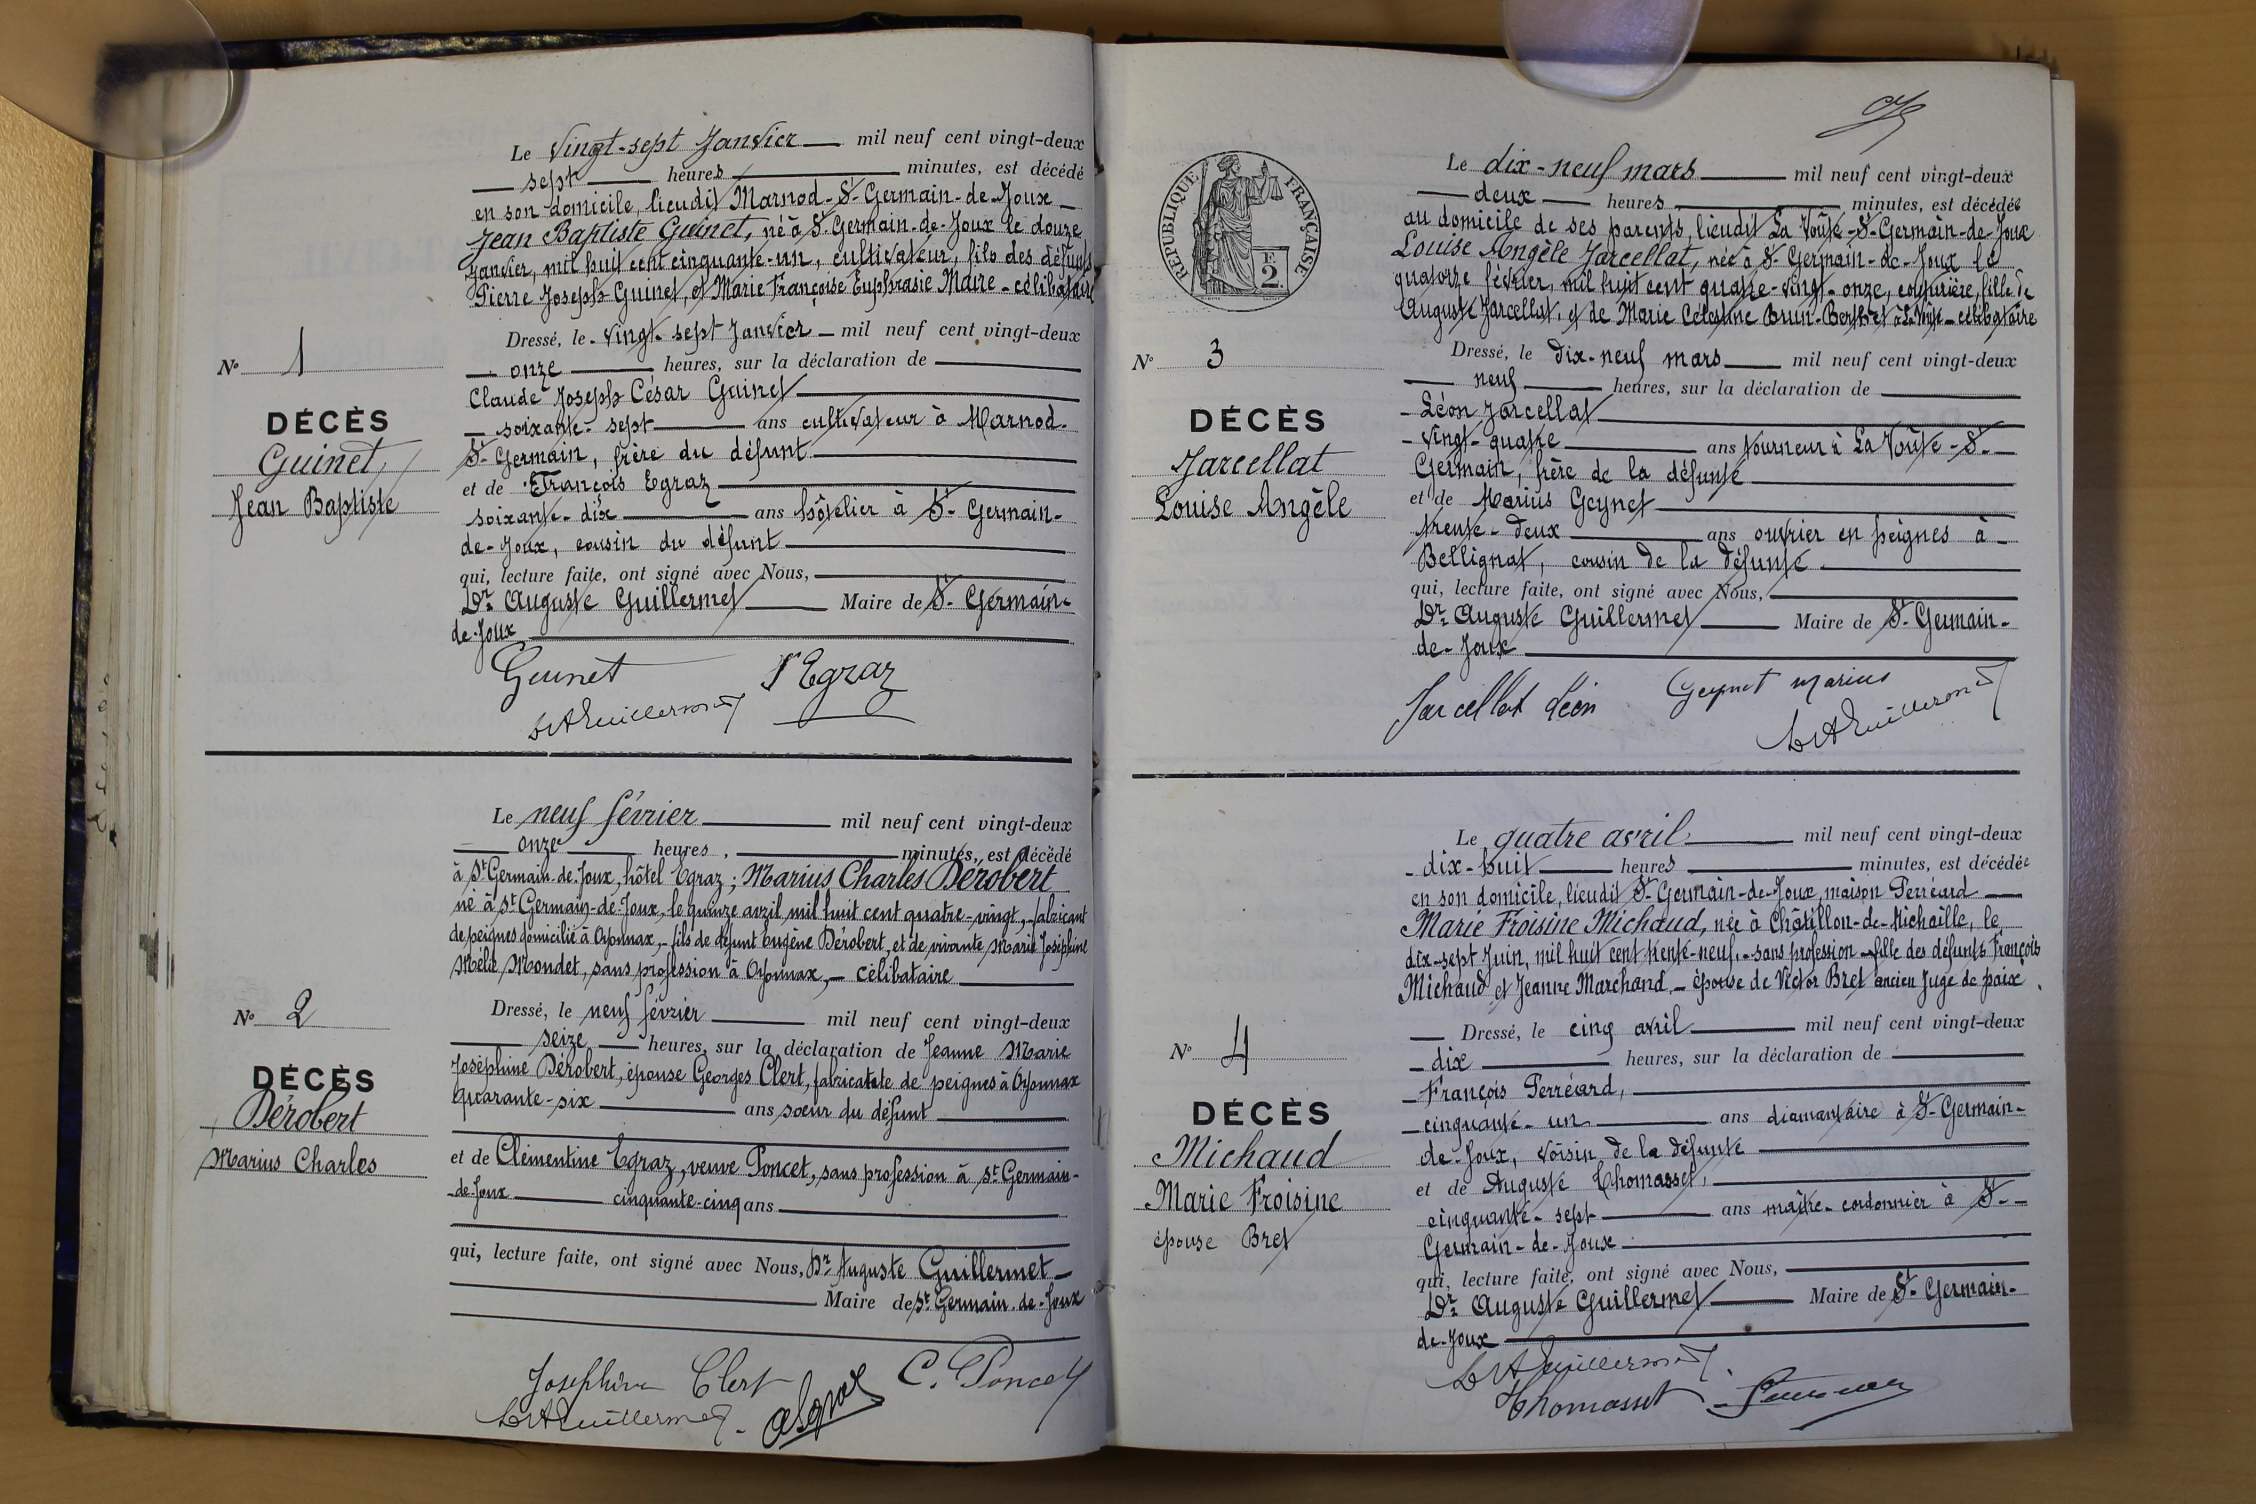 Le Vingt-sept Janvier mil neuf cent vingt-deux
sept heures minutes, est décédé
en son domicile, lieudit Marnod-St-Germain-de-Joux
Jean Baptiste Guinet, né à St-Germain-de-Joux le douze
Janvier, mil huit cent cinquante-un, cultivateur, fils des défunts
Pierre Joseph Guinet, et Marie Françoise Euphrasie Maire - célibataire
Dressé, le vingt-sept Janvier mil neuf cent vingt-deux
onze heures, sur la déclaration de
Claude Joseph César Guinet
soixante-sept ans cultivateur à Marnod-
St-Germain, frère du défunt
et de François Egraz
soixante-dix ans hôtelier à St-Germain-
de-Joux, cousin du défunt
qui, lecture faite, ont signé avec Nous,
Dr Auguste Guillermet Maire de St-Germain-
de-Joux
No 1
DÉCÈS
Guinet
Jean Baptiste
Guinet Egraz
Dr A Guillermet
Le neuf février mil neuf cent vingt-deux
onze heures, minutes, est décédé
à St Germain-de-Joux, hôtel Egraz ; Marius Charles Dérobert
né à St Germain-de-Joux, le quinze avril mil huit cent quatre-vingt, fabricant
de peignes domicilié à Oyonnax, fils de défunt Eugène Dérobert, et de vivante Marie Joséphine
Mélie Mondet, sans profession à Oyonnax, - célibataire
Dressé, le neuf février mil neuf cent vingt-deux
seize heures, sur la déclaration de Jeanne Marie
Joséphine Dérobert, épouse Georges Clert, fabricante de peignes à Oyonnax
quarante-six ans sœur du défunt
et de Clémentine Egraz, veuve Poncet, sans profession à St Germain-
de-Joux cinquante-cinq ans
qui, lecture faite, ont signé avec Nous, Dr Auguste Guillermet
Maire de St Germain-de-Joux
No 2
DÉCÈS
Dérobert
Marius Charles
Joséphine Clert C. Poncet
Dr A Guillermet
RÉPUBLIQUE FRANÇAISE
E
2.
Le dix-neuf mars mil neuf cent vingt-deux
deux heures minutes, est décédée
au domicile de ses parents, lieudit La Voûte-St-Germain-de-Joux
Louise Angèle Jarcellat, née à St-Germain-de-Joux le
quatorze février, mil huit cent quatre-vingt-onze, couturière, fille de
Auguste Jarcellat, et de Marie Célestine Brun-Berthet à La Voûte - célibataire
Dressé, le dix-neuf mars mil neuf cent vingt-deux
neuf heures, sur la déclaration de
Léon Jarcellat
vingt-quatre ans tourneur à La Voûte-St-
Germain, frère de la défunte
et de Marius Geynet
trente-deux ans ouvrier en peignes à
Bellignat, cousin de la défunte
qui, lecture faite, ont signé avec Nous,
Dr Auguste Guillermet Maire de St-Germain-
de-Joux
No 3
DÉCÈS
Jarcellat
Louise Angèle
Jarcellat Léon Geynet Marius
Dr A Guillermet
Le quatre avril mil neuf cent vingt-deux
dix-huit heures minutes, est décédée
en son domicile, lieudit St-Germain-de-Joux, maison Perréard
Marie Froisine Michaud, née à Châtillon-de-Michaille, le
dix-sept Juin, mil huit cent trente-neuf, sans profession - fille des défunts François
Michaud et Jeanne Marchand, - épouse de Victor Bret ancien Juge de paix.
Dressé, le cinq avril mil neuf cent vingt-deux
dix heures, sur la déclaration de
François Perréard,
cinquante-un ans diamantaire à St-Germain-
de-Joux, voisin de la défunte
et de Auguste Thomasset,
cinquante-sept ans maître-cordonnier à St-
Germain-de-Joux
qui, lecture faite, ont signé avec Nous,
Dr Auguste Guillermet Maire de St-Germain-
de-Joux
No 4
DÉCÈS
Michaud
Marie Froisine
épouse Bret
Dr A Guillermet
Thomasset